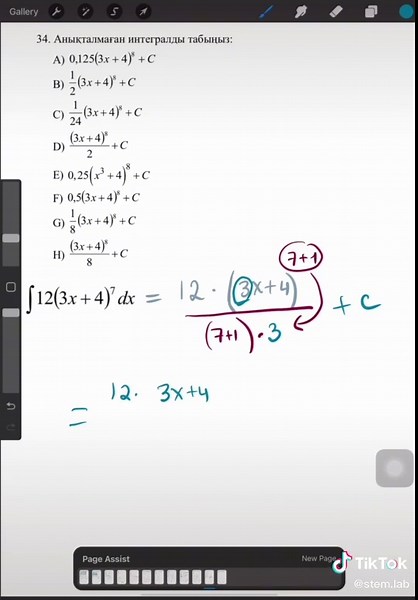 Gallery
34. Анықталмаған интегралды табыңыз:
A) 0,125(3x+4)⁸ + C
B) 1/2(3x+4)⁸ + C
C) 1/24(3x+4)⁸ + C
D) (3x+4)⁸/2 + C
E) 0,25(x³+4)⁸ + C
F) 0,5(3x+4)⁸ + C
G) 1/8(3x+4)⁸ + C
H) (3x+4)⁸/8 + C
∫12(3x+4)⁷dx = 12·(3x+4)⁷⁺¹/(7+1)·3 + C
= 12· 3x+4
Page Assist New Page
TikTok
@stem.lab